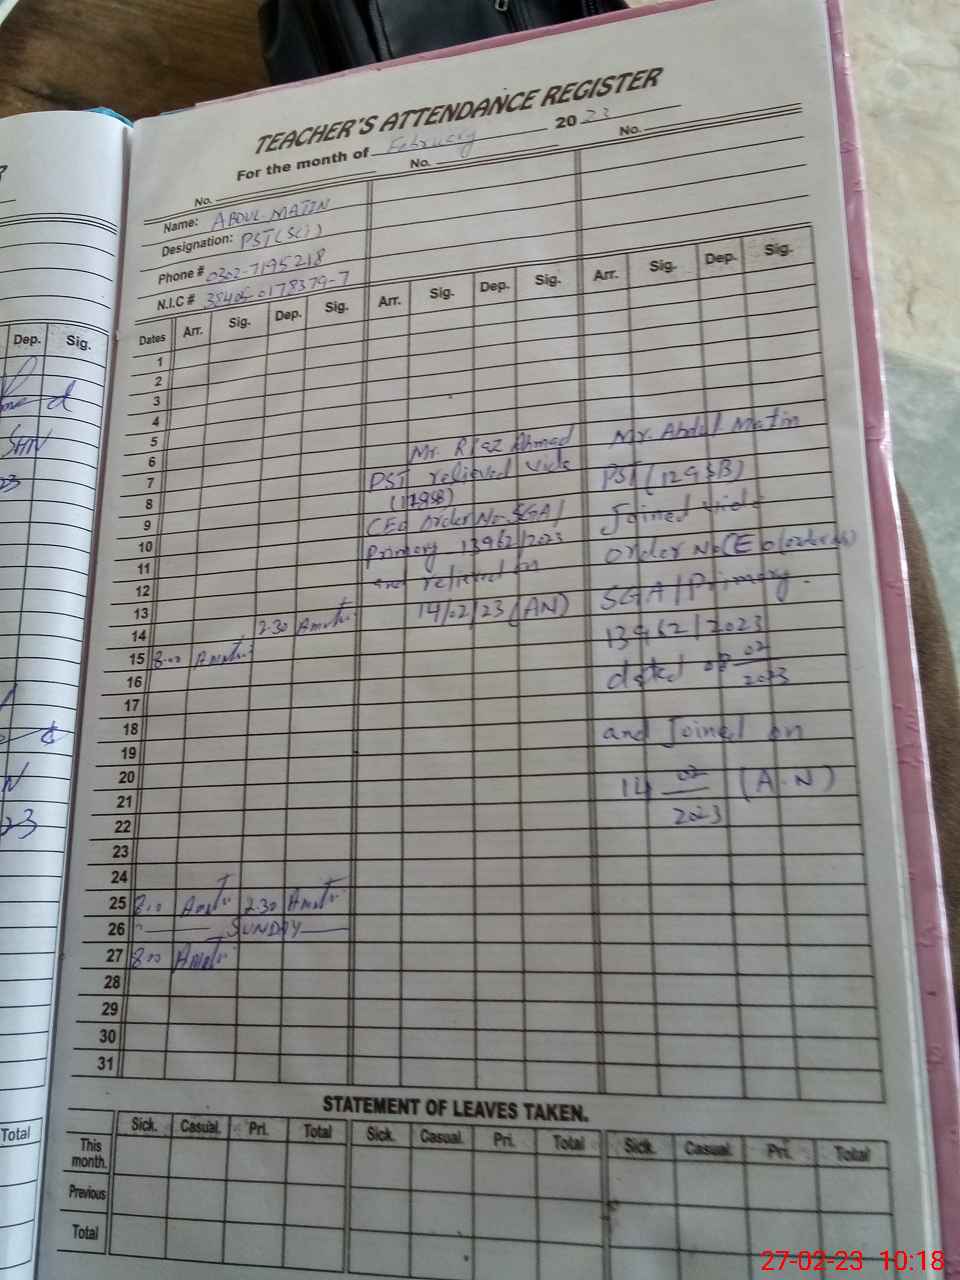 TEACHER'S ATTENDANCE REGISTER
For the month of February 2023
No. No. No.
Name: ABDUL MATIN
Designation: PST (SCI)
Phone # 0302-7195218
N.I.C # 38405-0178379-7
Dates Arr. Sig. Dep. Sig. Arr. Sig. Dep. Sig. Arr. Sig. Dep. Sig.
Dep. Sig.
1
2
3
4
5
6
7
8
9
10
11
12
13
14 2.30
15 8.00
16
17
18
19
20
21
22
23
24
25 8.00 2.30
26 SUNDAY
27 8.00
28
29
30
31
Mr. Riaz Ahmad
PST relieved vide
(1293B)
CEO order No. SGA/
Primary 13962/2023
and relieved on
14/02/23 (AN)
Mr. Abdul Matin
PST (1293B)
Joined vide
order No CEO
SGA/Primary.
13962/2023
dated 02
2023
and Joined on
14 02 (A.N)
2023
STATEMENT OF LEAVES TAKEN.
Sick. Casual. Pri. Total Sick. Casual. Pri. Total Sick. Casual. Pri. Total
This month.
Previous
Total
Total
27-02-23 10:18